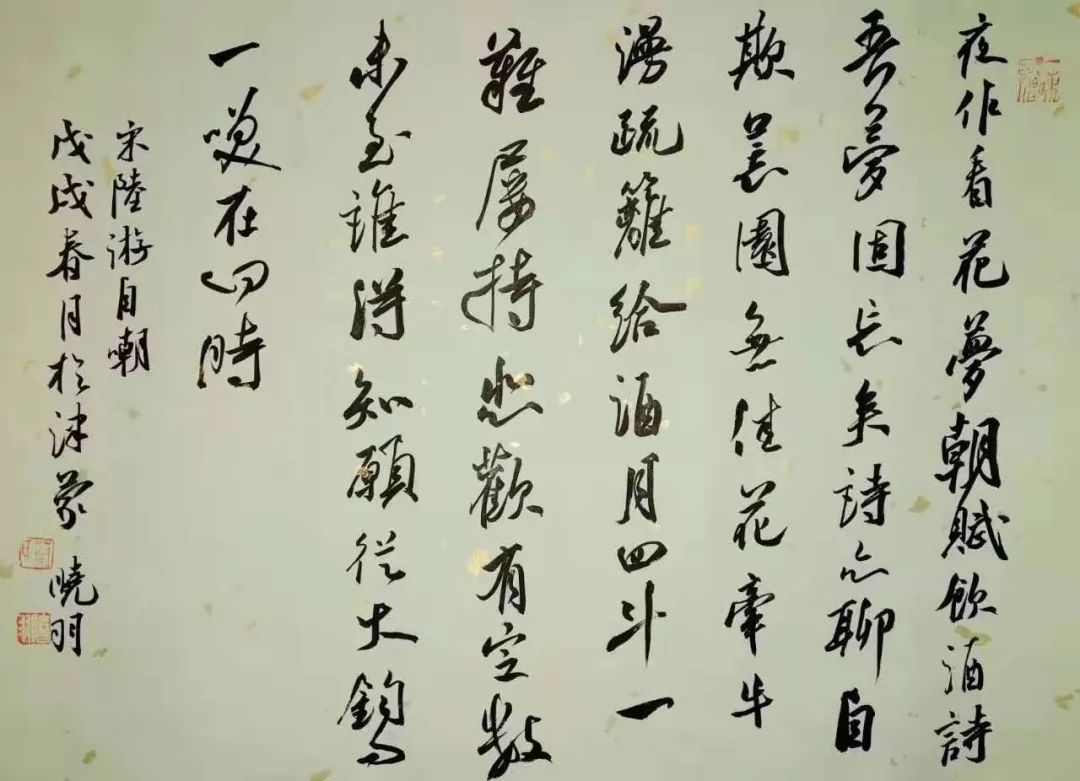 夜作看花夢朝賦飲酒詩
吾夢固矣詩亦聊自
欺園無佳花牽牛
漫疏籬給酒月四斗一
難屢持悲歡有定數
未至誰得知願從大鈞
一笑在時
宋陸游自嘲
戊戌春月於津蒙 曉羽